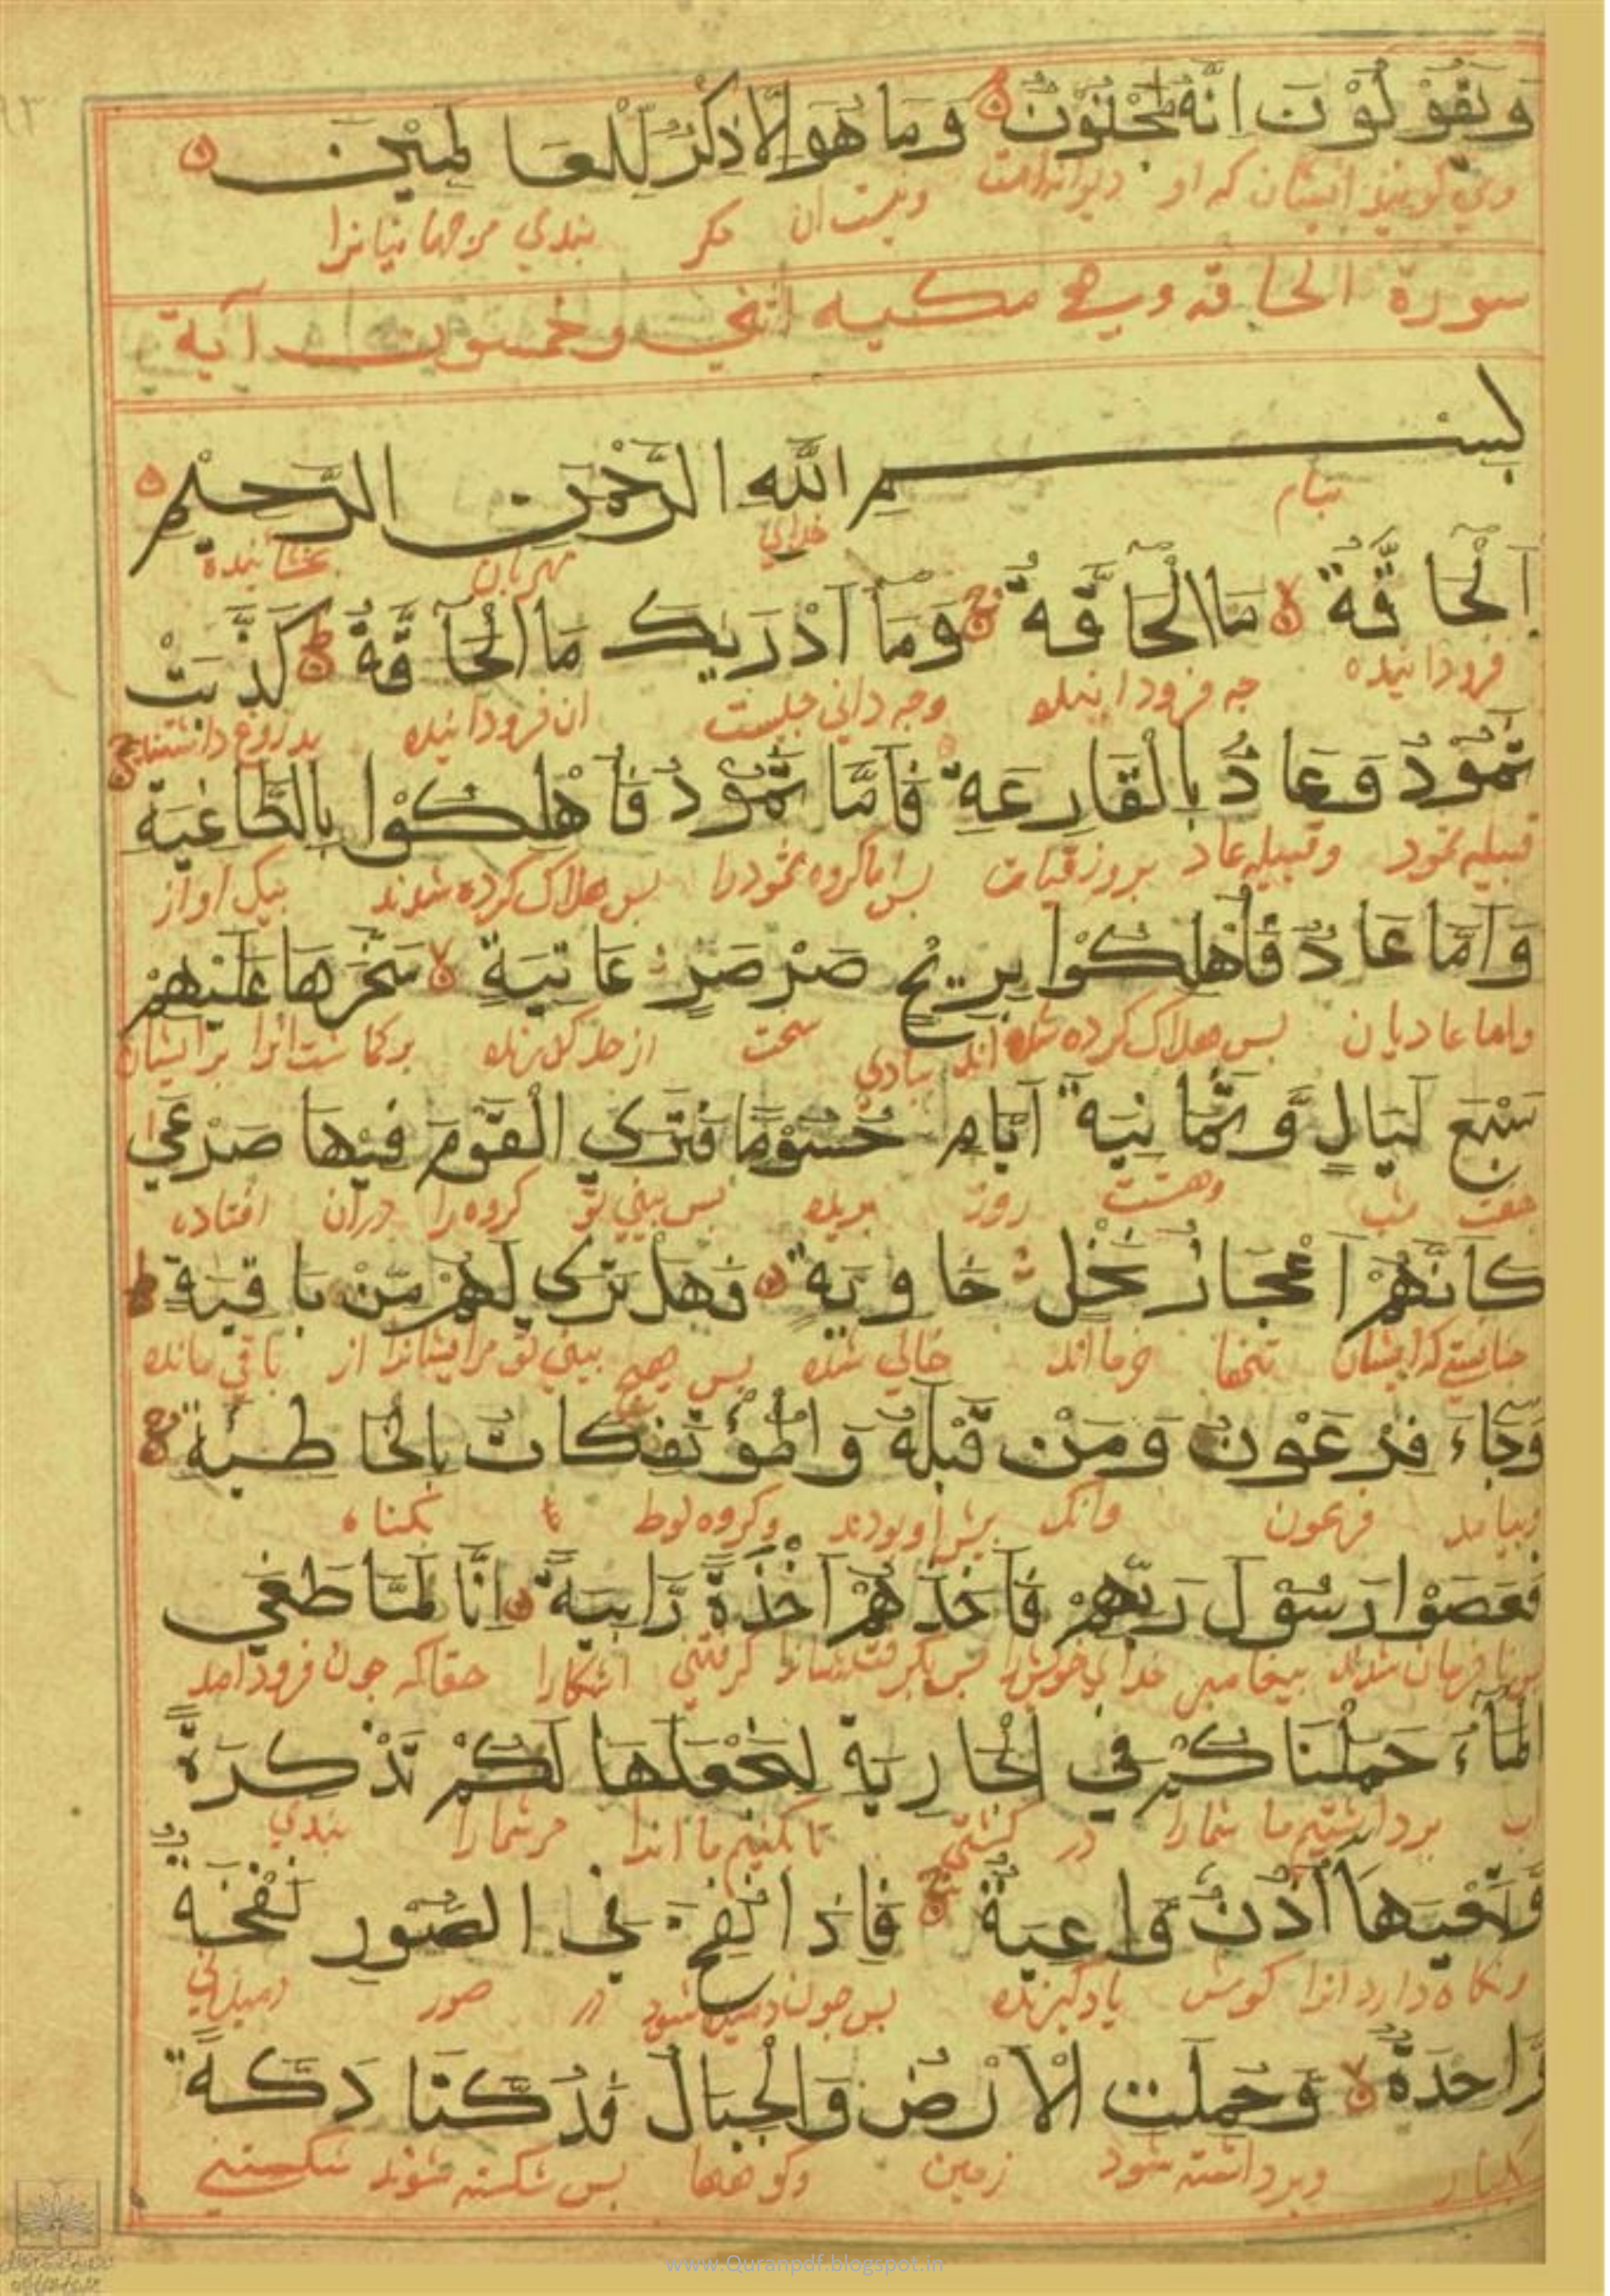 وَيَقُوْلُوْنَ اِنَّهُ لَمَجْنُوْنٌ وَمَا هُوَ اِلَّا ذِكْرٌ لِّلْعَالَمِيْنَ
وميكويند ايشان كه او ديوانه است ونيست ان مكر بندي مر جهانيانرا
سورة الحاقة وهي مكيه اثني وخمسون آية
بِسْمِ اللّٰهِ الرَّحْمٰنِ الرَّحِيْمِ
بنام خداي مهربان بخشاينده
اَلْحَاقَّةُ مَا الْحَاقَّةُ وَمَا اَدْرٰيكَ مَا الْحَاقَّةُ كَذَّبَتْ
فروداينده چه فروداينده وچه داني چيست ان فروداينده بدروغ داشتند
ثَمُوْدُ وَعَادٌ بِالْقَارِعَةِ فَاَمَّا ثَمُوْدُ فَاُهْلِكُوْا بِالطَّاغِيَةِ
قبيله ثمود وقبيله عاد بروز قيامت پس اما كروه ثمود را پس هلاك كرده شدند بيك اواز
وَاَمَّا عَادٌ فَاُهْلِكُوْا بِرِيْحٍ صَرْصَرٍ عَاتِيَةٍ سَخَّرَهَا عَلَيْهِمْ
واما عاديان پس هلاك كرده شده اند ببادي سخت از حد كذرنده بركماشت انرا برايشان
سَبْعَ لَيَالٍ وَّثَمَانِيَةَ اَيَّامٍ حُسُوْمًا فَتَرَى الْقَوْمَ فِيْهَا صَرْعٰى
هفت شب وهشت روز بريده پس بيني تو كروه را دران افتاده
كَاَنَّهُمْ اَعْجَازُ نَخْلٍ خَاوِيَةٍ فَهَلْ تَرٰى لَهُمْ مِّنْ بَاقِيَةٍ
چنانستي كه ايشان تنها خرما اند خالي شده پس هيچ بيني تو مرايشانرا از باقي مانده
وَجَاءَ فِرْعَوْنُ وَمَنْ قَبْلَهُ وَالْمُؤْتَفِكَاتُ بِالْخَاطِئَةِ
وبيامد فرعون وانك پيش او بودند وكروه لوط بكناه
فَعَصَوْا رَسُوْلَ رَبِّهِمْ فَاَخَذَهُمْ اَخْذَةً رَّابِيَةً اِنَّا لَمَّا طَغَى
پس نافرمان شدند پيغامبر خداي خويش را پس بكرفتشانرا كرفتني اشكارا حقا كه چون فرود امد
الْمَاءُ حَمَلْنَاكُمْ فِي الْجَارِيَةِ لِنَجْعَلَهَا لَكُمْ تَذْكِرَةً
اب برداشتيم ما شمارا در كشتي تا كنيم ما انرا مر شمارا بندي
وَّتَعِيَهَا اُذُنٌ وَّاعِيَةٌ فَاِذَا نُفِخَ فِي الصُّوْرِ نَفْخَةٌ
ونكاه دارد انرا كوش يادكيرنده پس چون دميده شود در صور دميدني
وَّاحِدَةٌ وَحُمِلَتِ الْاَرْضُ وَالْجِبَالُ فَدُكَّتَا دَكَّةً
يكبار وبرداشته شود زمين وكوهها پس شكسته شوند شكستني
www.Quranpdf.blogspot.in